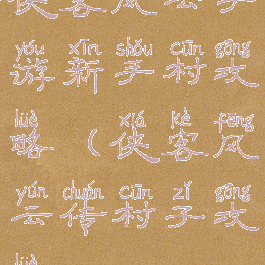 侠客风云手
yóu xīn shǒu cūn gōng
游新手村攻
lüè xiá kè fēng
略（侠客风
yún chuán cūn zǐ gōng
云传村子攻
lüè